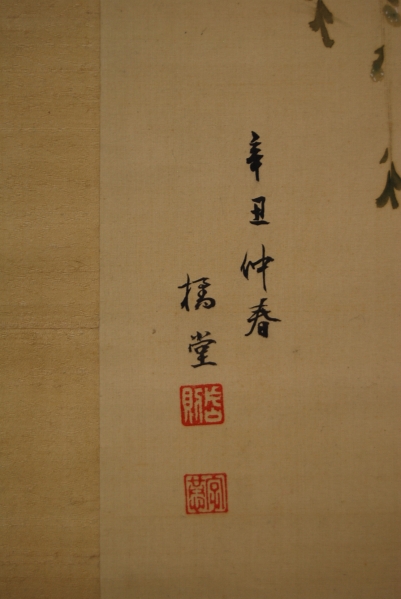 辛丑仲春
橘堂